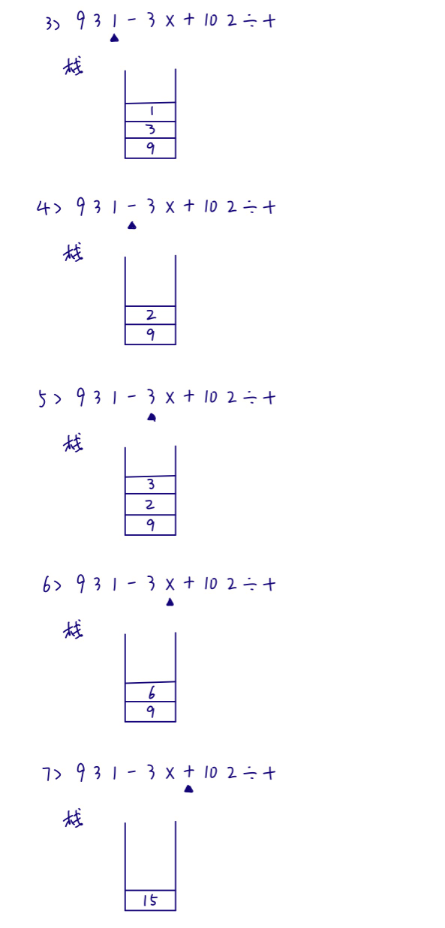 3> 9 3 1 - 3 × + 10 2 ÷ +
栈
1
3
9
4> 9 3 1 - 3 × + 10 2 ÷ +
栈
2
9
5> 9 3 1 - 3 × + 10 2 ÷ +
栈
3
2
9
6> 9 3 1 - 3 × + 10 2 ÷ +
栈
6
9
7> 9 3 1 - 3 × + 10 2 ÷ +
栈
15